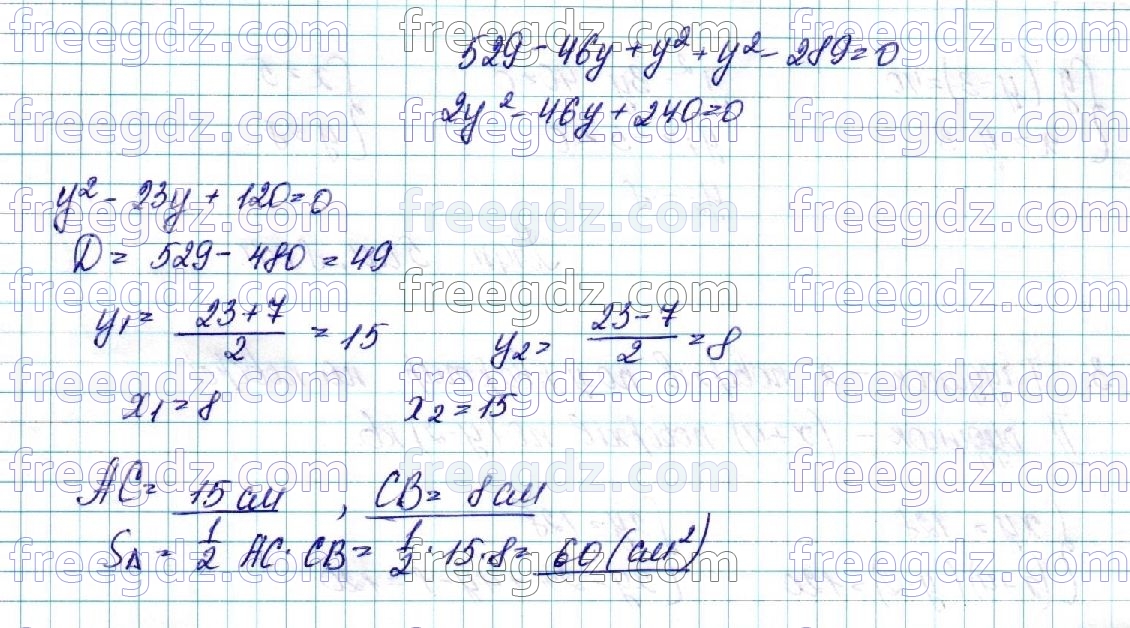 529 - 46y + y² + y² - 289 = 0
2y² - 46y + 240 = 0
y² - 23y + 120 = 0
D = 529 - 480 = 49
y₁ = (23+7)/2 = 15    y₂ = (23-7)/2 = 8
x₁ = 8    x₂ = 15
AC = 15 см, CB = 8 см
S∆ = 1/2 AC · CB = 1/2 · 15 · 8 = 60 (см²)
freegdz.com